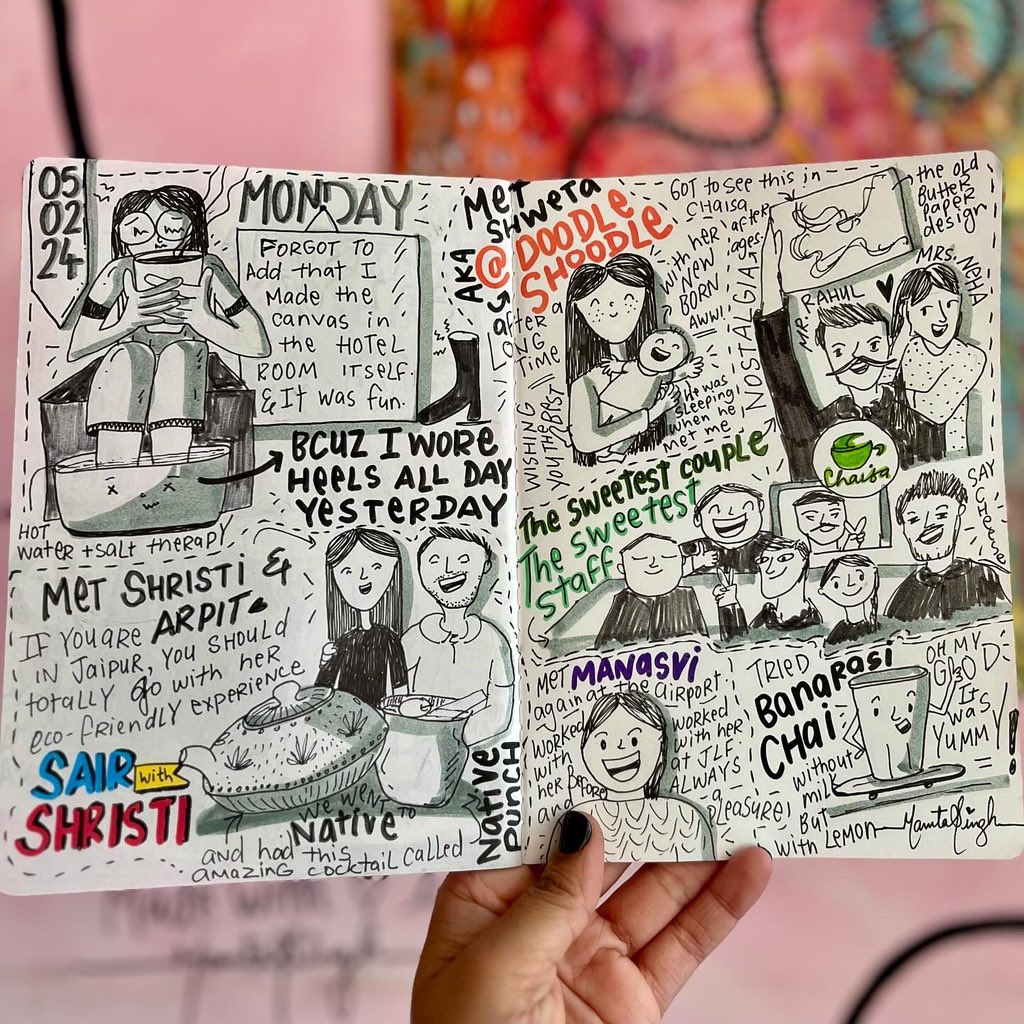 05
02
24
MONDAY
FORGOT TO
Add that I
Made the
canvas in
the HOTEL
ROOM ITSELF.
& It was fun.
BCUZ I WORE
HEELS ALL DAY
YESTERDAY
HOT
water + salt therapy
MET SHRISTI &
ARPIT
IF YOU ARE
IN JAIPUR, YOU SHOULD
totally go with her
eco-friendly experience
SAIR with
SHRISTI
WE WENT TO
Native
and had this
amazing cocktail called
NATIVE
PUNCH
MET
SHWETA
AKA
@DOODLE
SHOODLE
AFTER A
LONG
TIME
with her
NEW
BORN
AWW!
He was
sleeping!
when he
met me
WISHING
YOU THE BEST
GOT to see this in
CHAISA
after
ages
NOSTALGIA
the old
Butter
paper
design
MR. RAHUL
MRS. NEHA
Chaisa
The sweetest couple
The sweetest
staff
SAY
CHEESE
MET MANASVI
again at the airport.
WORKED
with
her before
and
worked
with her
at JLF.
ALWAYS
a
pleasure!
TRIED
BANARASI
CHAI
without
milk
But
with Lemon
OH MY
GOD
It
was
YUMMY!
Mamta Singh